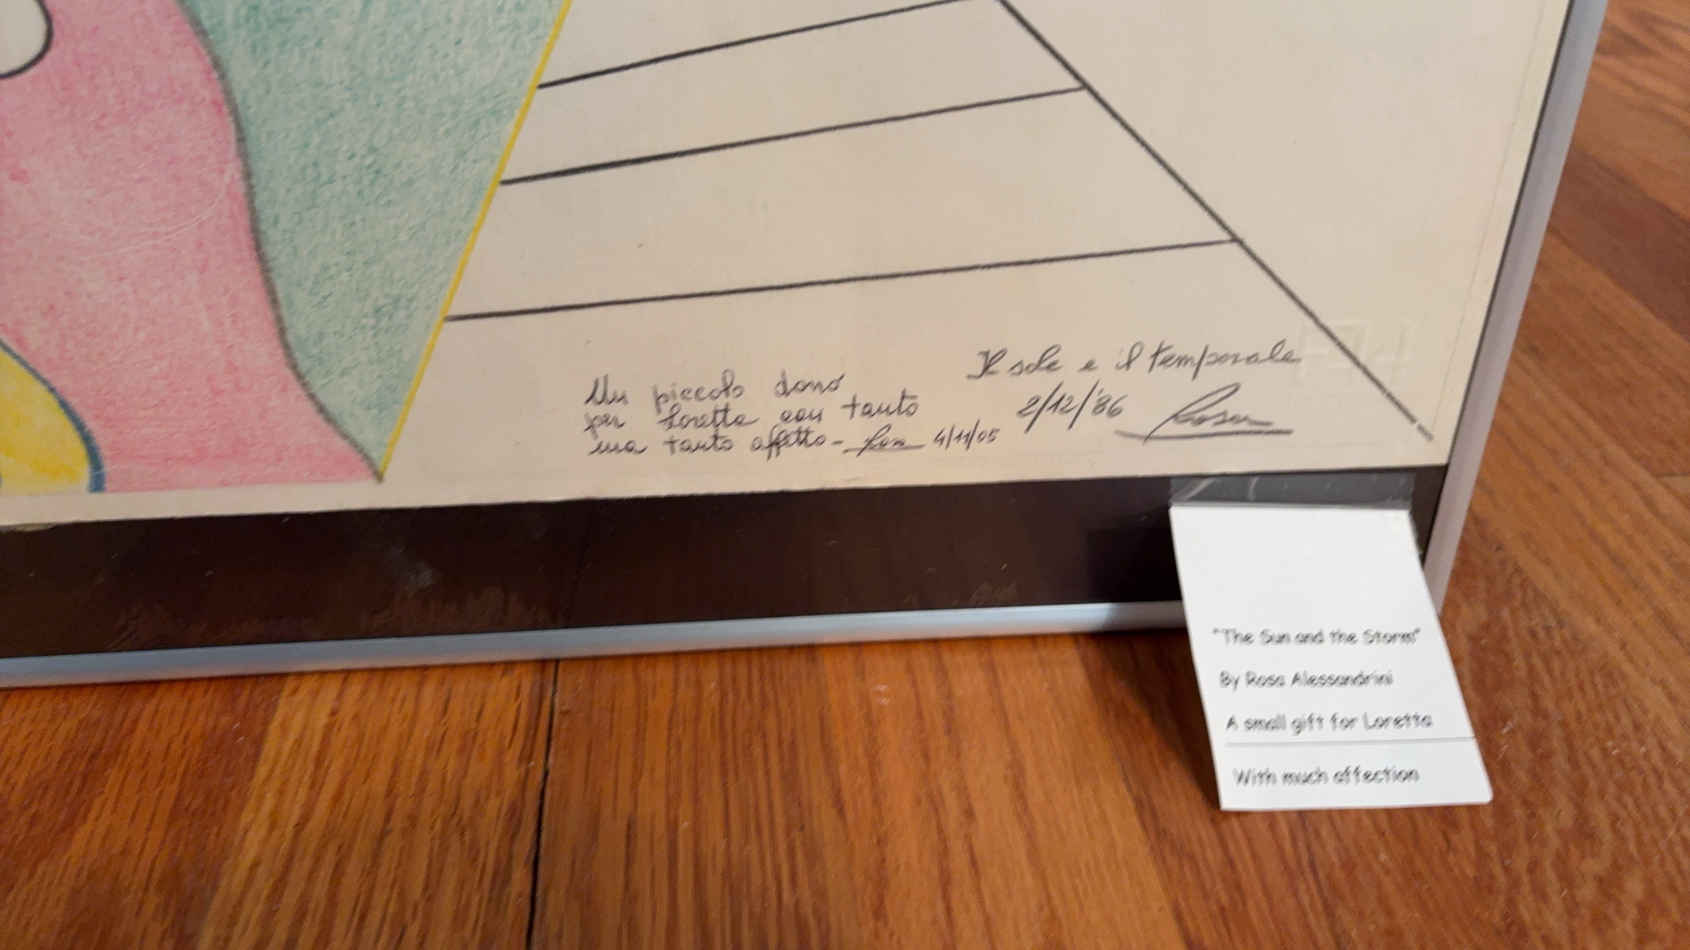 Un piccolo dono
per Loretta con tanto
ma tanto affetto - Rosa 4/11/05
Il sole e il temporale
2/12/'86 Rosa
"The Sun and the Storm"
By Rosa Alessandrini
A small gift for Loretta
With much affection